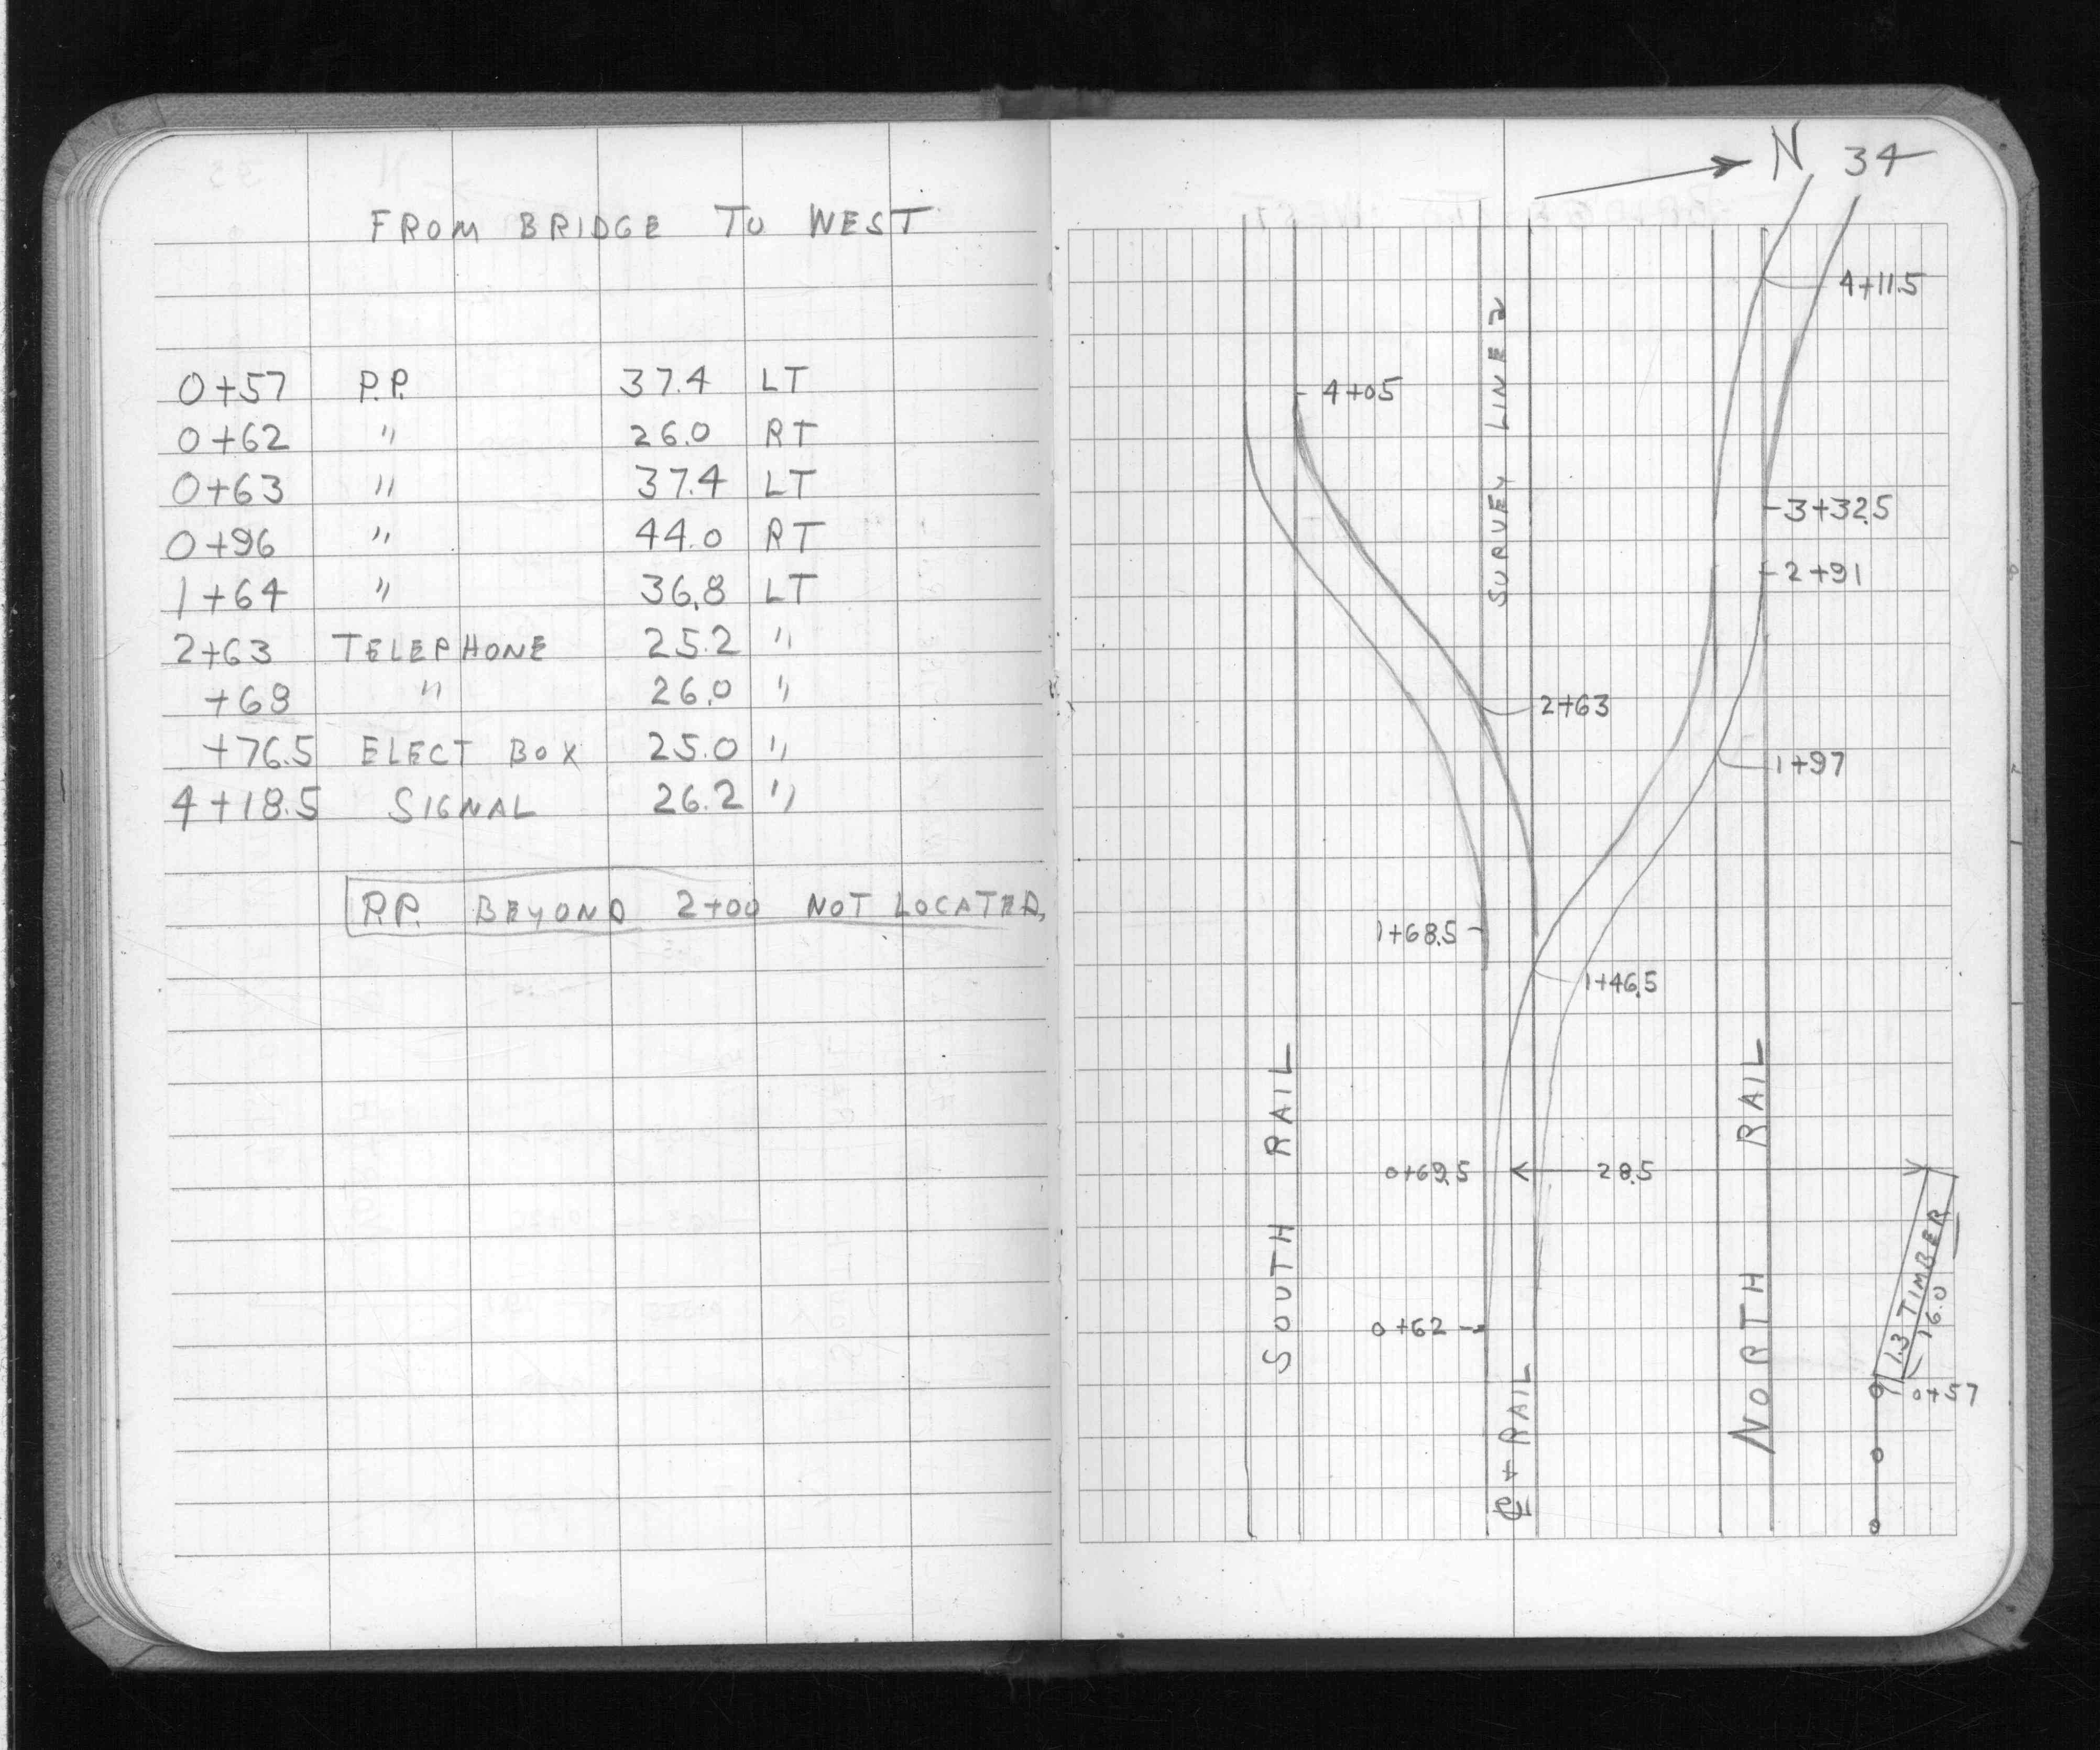 FROM BRIDGE TO WEST
0+57 P.P. 37.4 LT
0+62 " 26.0 RT
0+63 " 37.4 LT
0+96 " 44.0 RT
1+64 " 36.8 LT
2+63 TELEPHONE 25.2 "
+68 " 26.0 "
+76.5 ELECT BOX 25.0 "
4+18.5 SIGNAL 26.2 "
P.P. BEYOND 2+00 NOT LOCATED.
N 34
4+11.5
4+05
SURVEY LINE
3+32.5
2+91
2+63
1+97
1+68.5
1+46.5
SOUTH RAIL
NORTH RAIL
0+69.5
28.5
0+62
℄ + RAIL
1.3 TIMBER
16.0
0+57